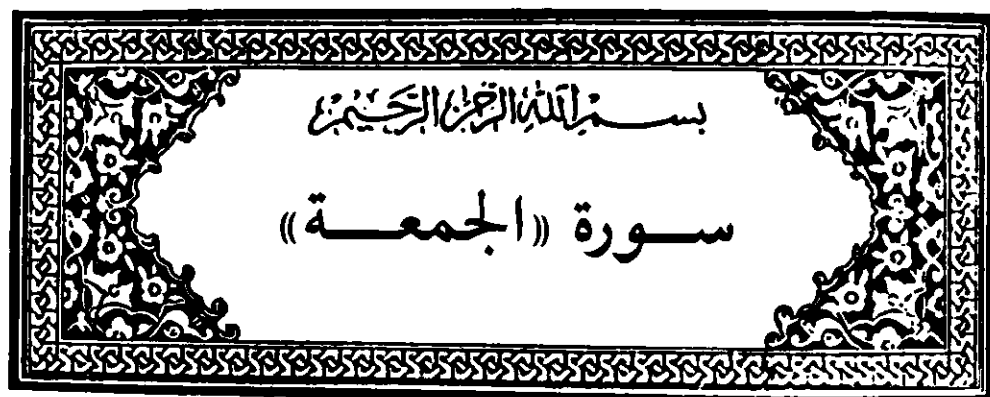 بسم الله الرحمن الرحيم
سورة ((الجمعة))